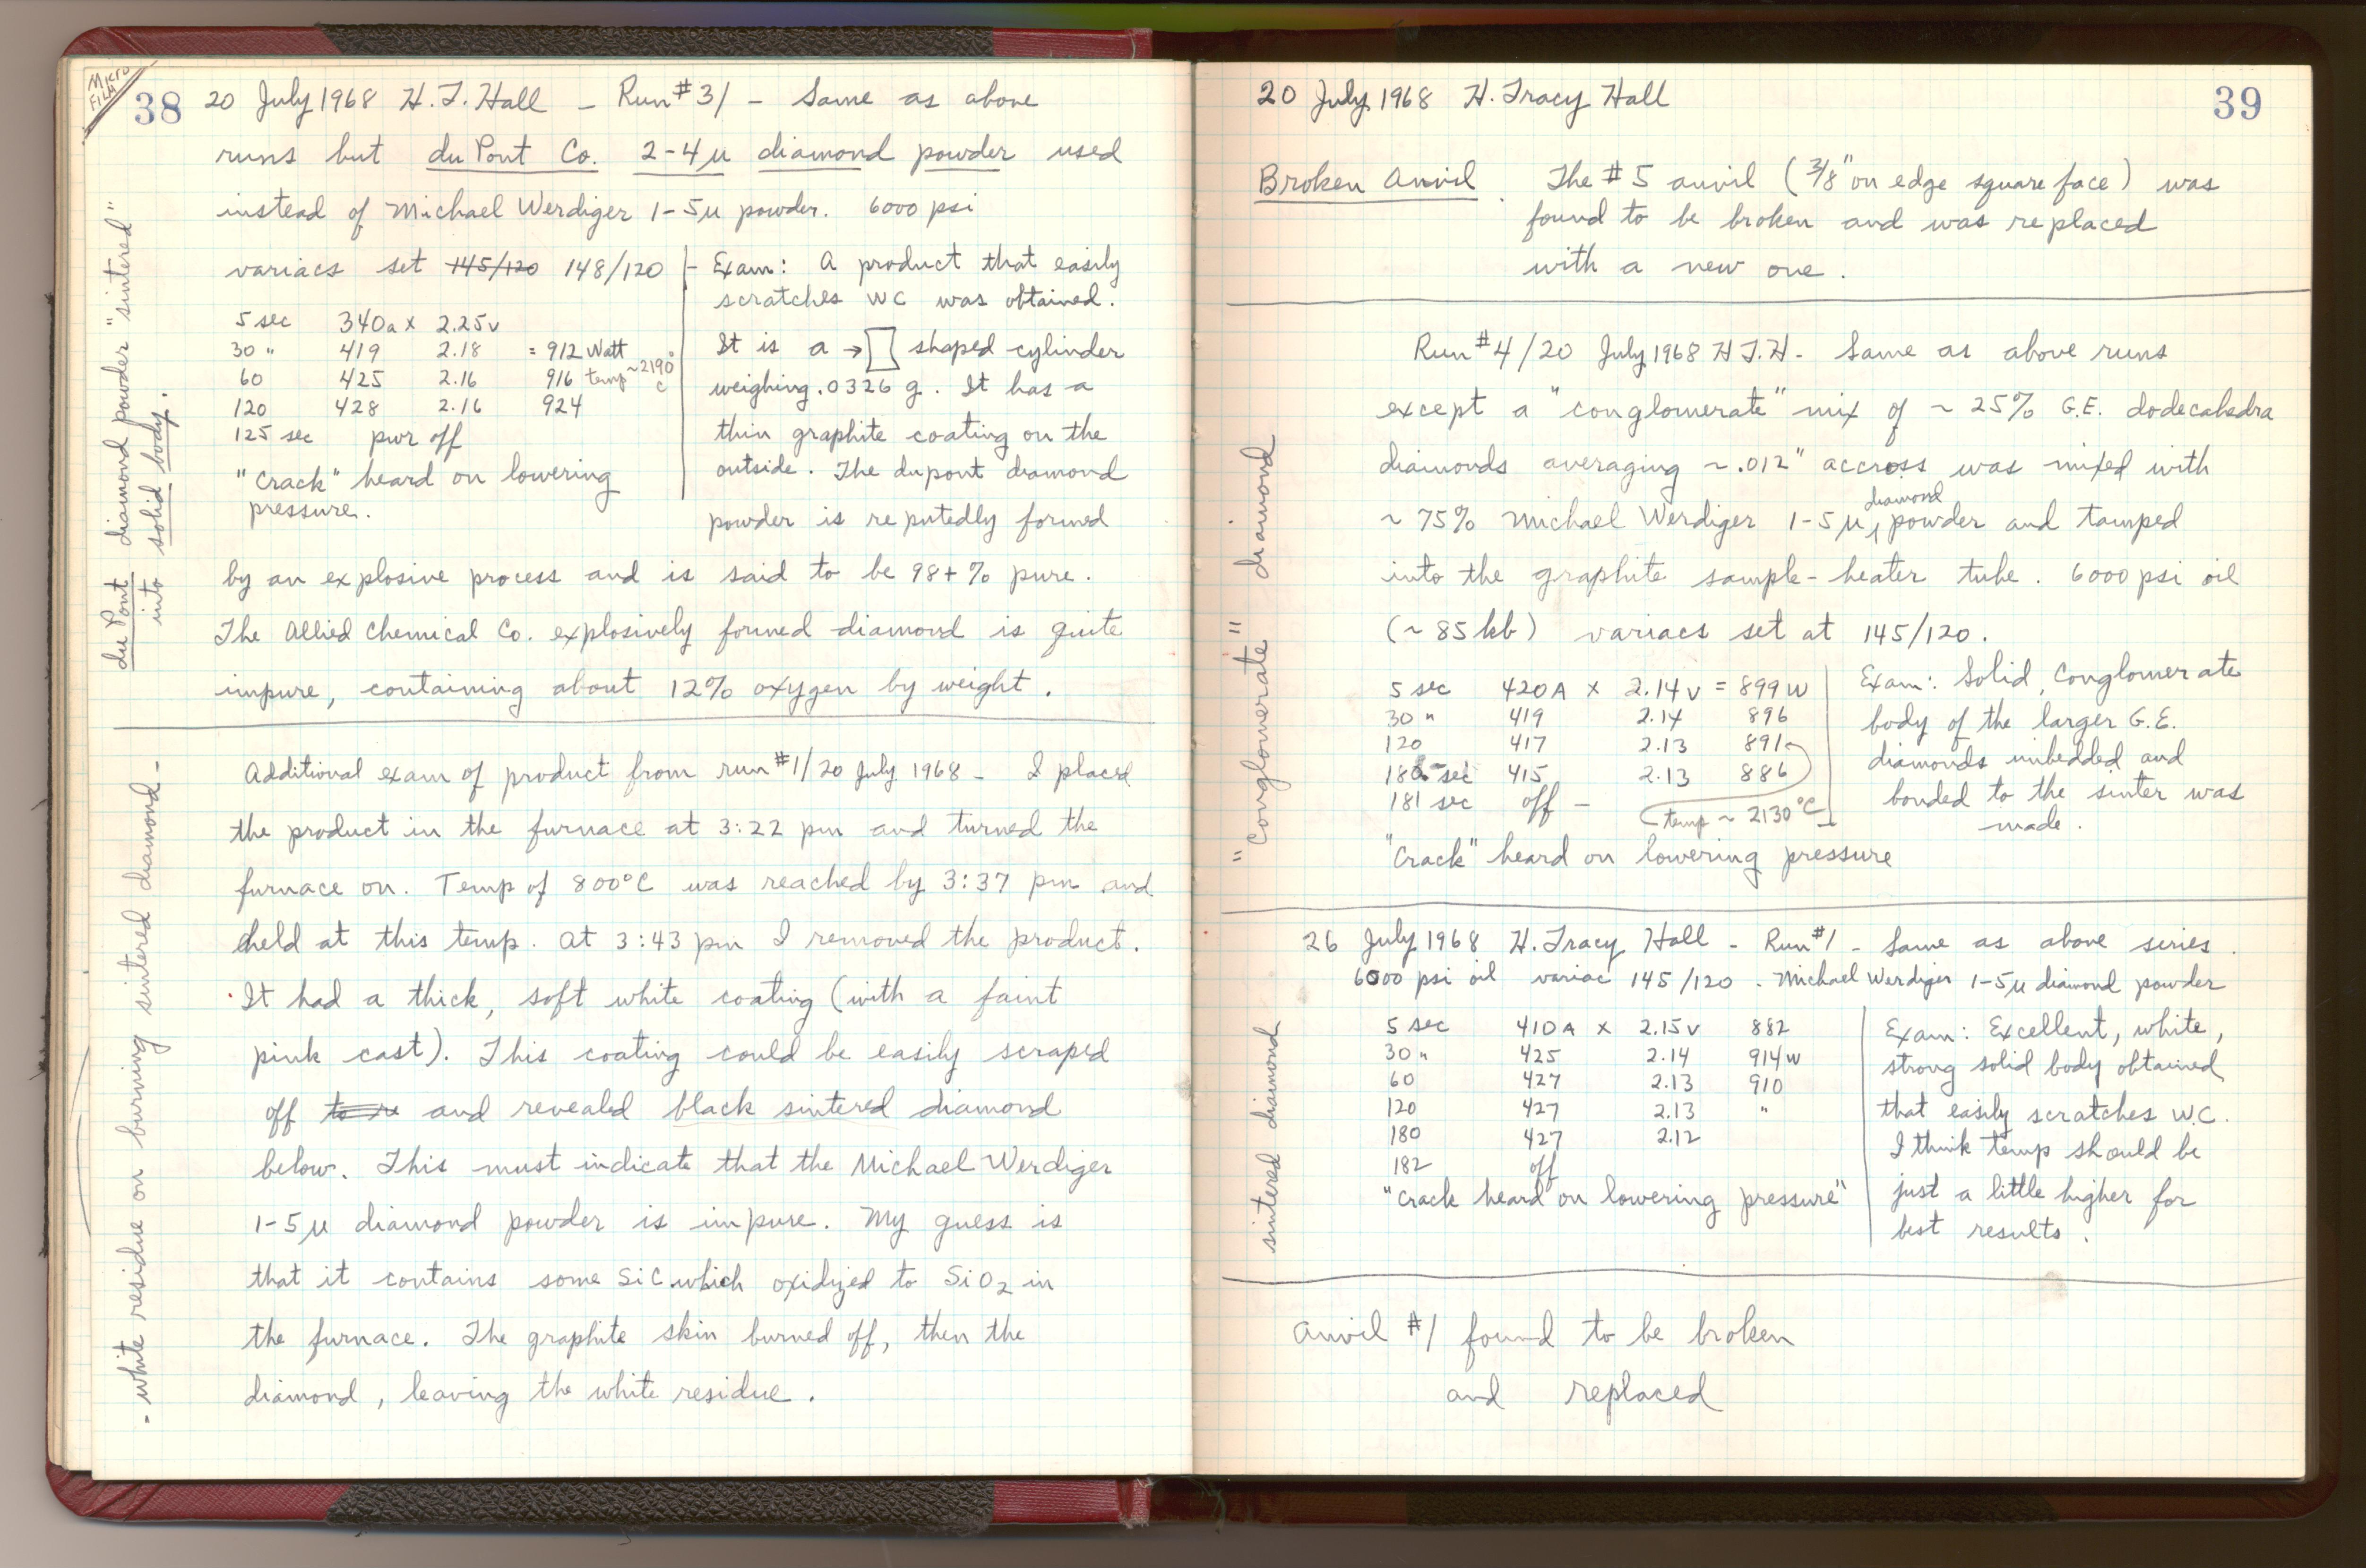 MICRO
FILM
38 20 July 1968 H. T. Hall - Run #3/ - Same as above
runs but du Pont Co. 2-4µ diamond powder used
instead of Michael Werdiger 1-5µ powder. 6000 psi
variacs set 145/120 148/120
5 sec 340a x 2.25v
30 " 419 2.18 = 912 Watt
60 425 2.16 916 temp ~2190°C
120 428 2.16 924
125 sec pwr off
"Crack" heard on lowering
pressure.
Exam: A product that easily
scratches WC was obtained.
It is a → shaped cylinder
weighing .0326 g. It has a
thin graphite coating on the
outside. The dupont diamond
powder is reputedly formed
by an explosive process and is said to be 98+% pure.
The Allied Chemical Co. explosively formed diamond is quite
impure, containing about 12% oxygen by weight.
du Pont diamond powder "sintered"
into solid body.
Additional exam of product from run #1/20 July 1968 - I placed
the product in the furnace at 3:22 pm and turned the
furnace on. Temp of 800°C was reached by 3:37 pm and
held at this temp. At 3:43 pm I removed the product.
It had a thick, soft white coating (with a faint
pink cast). This coating could be easily scraped
off and revealed black sintered diamond
below. This must indicate that the Michael Werdiger
1-5µ diamond powder is impure. My guess is
that it contains some SiC which oxidized to SiO2 in
the furnace. The graphite skin burned off, then the
diamond, leaving the white residue.
- white residue on burning sintered diamond -
20 July 1968 H. Tracy Hall 39
Broken Anvil. The #5 anvil (3/8" on edge square face) was
found to be broken and was replaced
with a new one.
Run #4/20 July 1968 H T. H - Same as above runs
except a "conglomerate" mix of ~ 25% G.E. dodecahedra
diamonds averaging ~.012" accross was mixed with
~ 75% Michael Werdiger 1-5µ diamond powder and tamped
into the graphite sample-heater tube. 6000 psi oil
(~85kb) variacs set at 145/120.
5 sec 420A x 2.14v = 899W
30 " 419 2.14 896
120 417 2.13 891
180 sec 415 2.13 886
181 sec off - temp ~ 2130°C
"Crack" heard on lowering pressure
Exam: Solid, Conglomerate
body of the larger G.E.
diamonds imbedded and
bonded to the sinter was
made.
"Conglomerate" diamond
26 July 1968 H. Tracy Hall - Run #1 - Same as above series.
6000 psi oil variac 145/120. Michael Werdiger 1-5µ diamond powder
5 sec 410A x 2.15v 882
30 " 425 2.14 914W
60 427 2.13 910
120 427 2.13 "
180 427 2.12
182 off
"Crack heard on lowering pressure"
Exam: Excellent, white,
strong solid body obtained
that easily scratches W.C.
I think temp should be
just a little higher for
best results.
sintered diamond
Anvil #1 found to be broken
and replaced